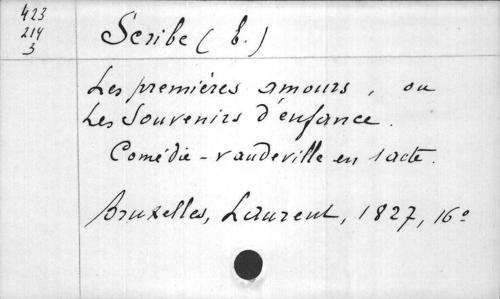 423
214
3
Scribe (E.)
Les premières amours, ou
Les Souvenirs d'enfance.
Comédie-vaudeville en 1 acte.
Bruxelles, Laurent, 1827, 16º